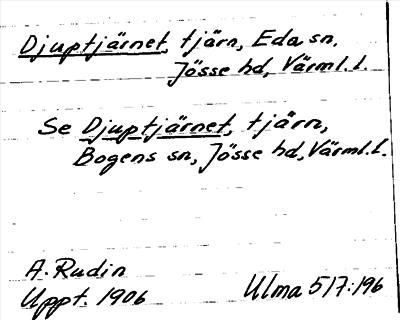 Djuptjärnet, tjärn, Eda sn.
Jösse hd, Värml. l.
Se Djuptjärnet, tjärn,
Bogens sn, Jösse hd, Värml. l.
A. Rudin
Uppt. 1906
Ulma 517:196